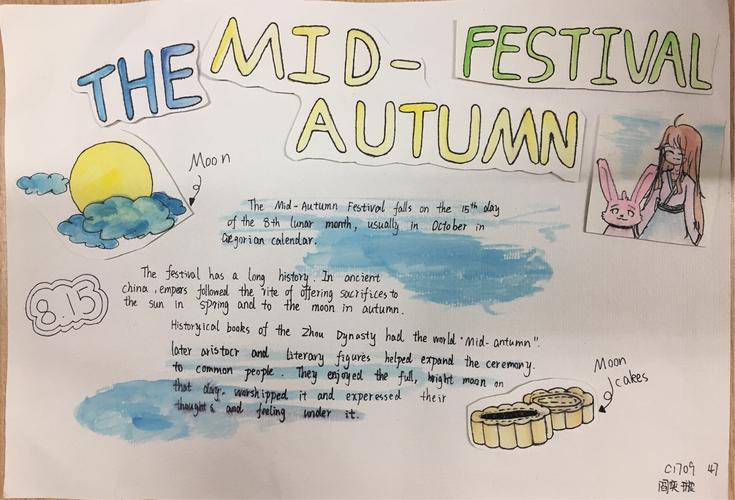 THE MID- FESTIVAL
AUTUMN
Moon
The Mid-Autumn Festival falls on the 15th day
of the 8th lunar month, usually in October in
Gregorian calendar.
The festival has a long history. In ancient
china, empers followed the rite of offering sacrifices to
the sun in spring and to the moon in autumn.
8.15
Historyical books of the Zhou Dynasty had the world "Mid-antumn".
later aristocr and literary figures helped expand the ceremony.
to common people. They enjoyed the full, bright moon on
that day. worshipped it and experessed their
thoughts and feeling under it.
Moon
cakes
C1709 47